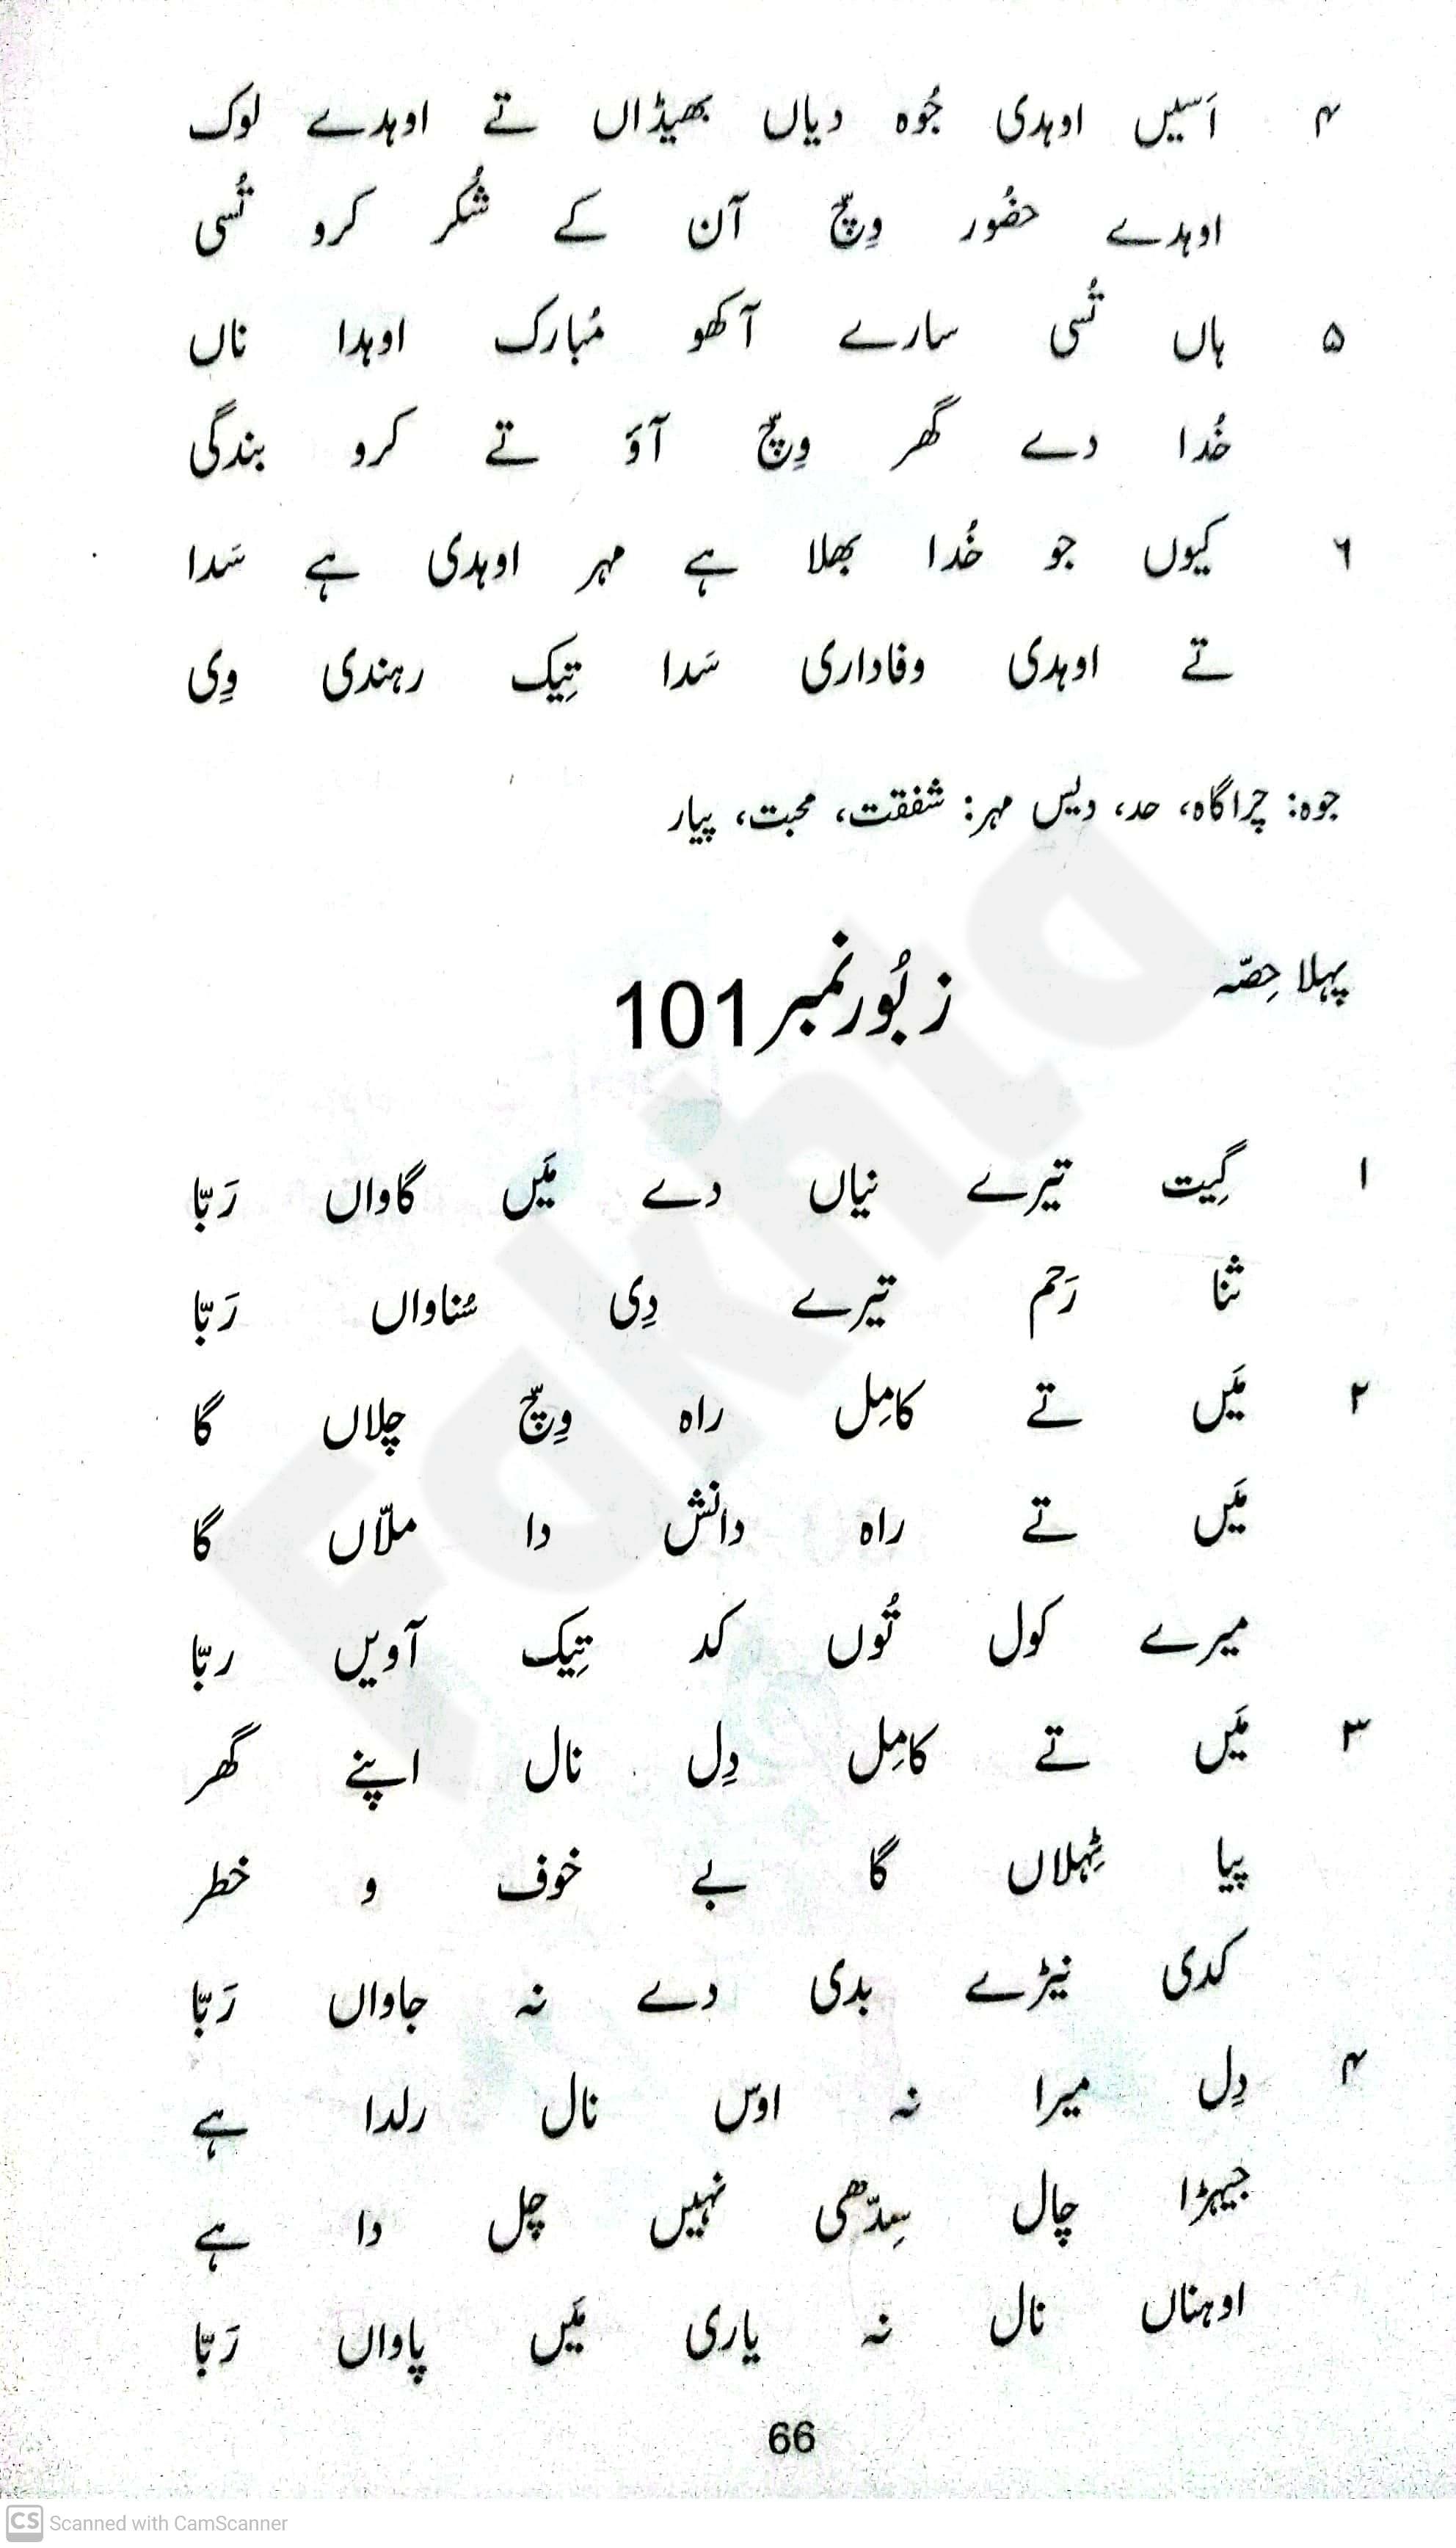 ۴ اَسیں اوہدی جُوہ دیاں بھیڈاں تے اوہدے لوک
اوہدے حضُور وِچّ آن کے شُکر کرو تُسی
۵ ہاں تُسی سارے آکھو مُبارک اوہدا ناں
خُدا دے گھر وِچّ آوَ تے کرو بندگی
۶ کیوں جو خُدا بھلا ہے مہر اوہدی ہے سَدا
تے اوہدی وفاداری سَدا تِیک رہندی وِی
جوہ: چراگاہ، حد، دیس مہر: شفقت، محبت، پیار
پہلا حِصّہ
زبُور نمبر 101
۱ گِیت تیرے نیاں دے مَیں گاواں رَبّا
ثنا رَحم تیرے دِی سُناواں رَبّا
۲ مَیں تے کامِل راہ وِچّ چلاں گا
مَیں تے راہ دانش دا ملّاں گا
میرے کول تُوں کد تِیک آویں ربّا
۳ مَیں تے کامِل دِل نال اپنے گھر
پیا ٹِہلاں گا بے خوف و خطر
کدی نیڑے بدی دے نہ جاواں رَبّا
۴ دِل میرا نہ اوس نال رلدا ہے
جیہڑا چال سِدّھی نہیں چل دا ہے
اوہناں نال نہ یاری مَیں پاواں رَبّا
66
Fakhta
CS Scanned with CamScanner